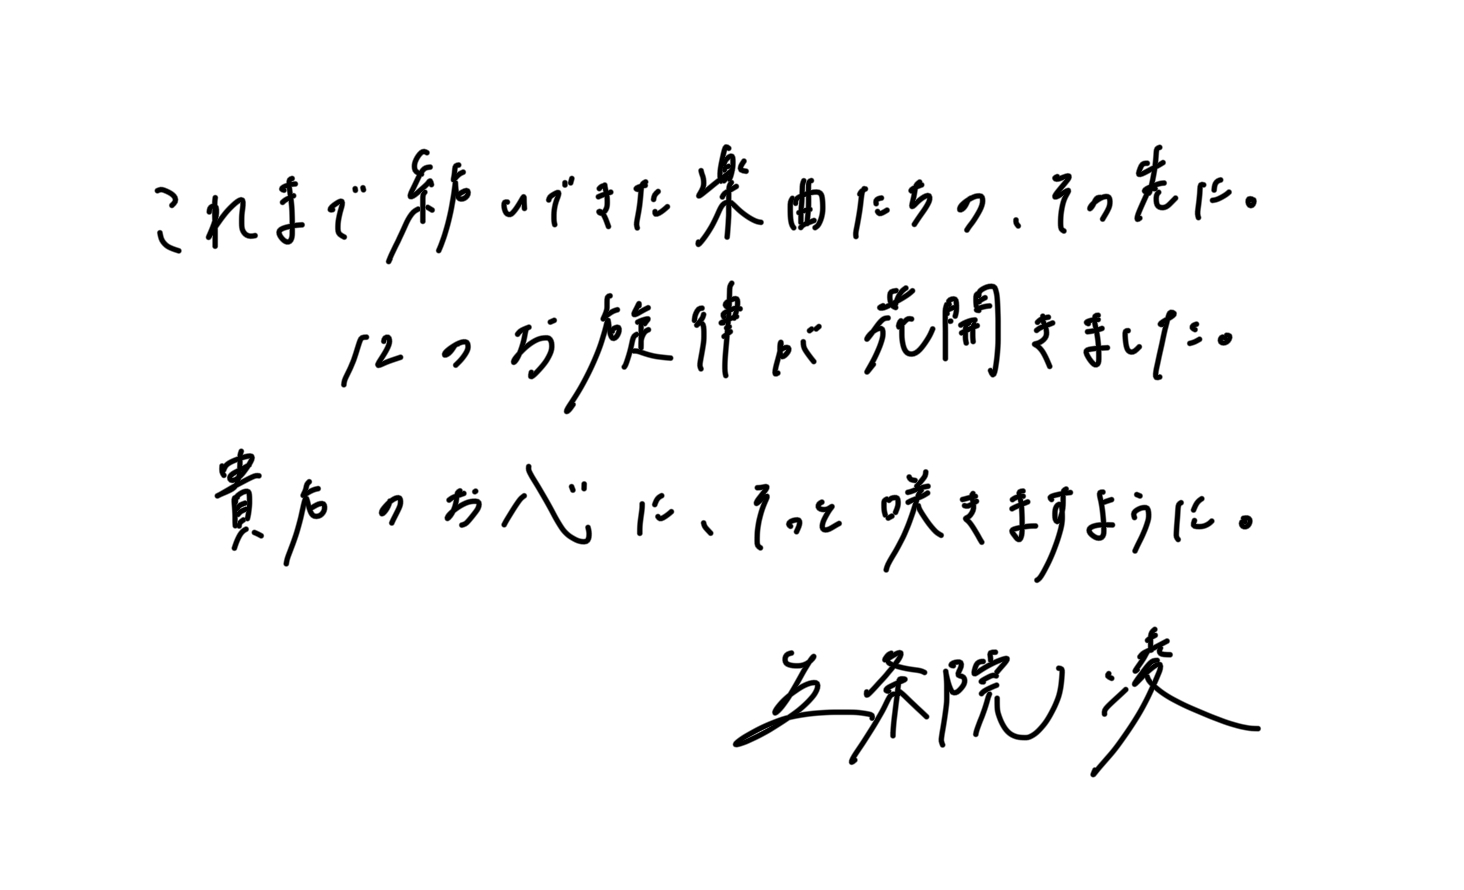 これまで結いできた楽曲たちの、その先に。
12のお旋律が花開きました。
貴方のお心に、そっと咲きますように。
五条院凌